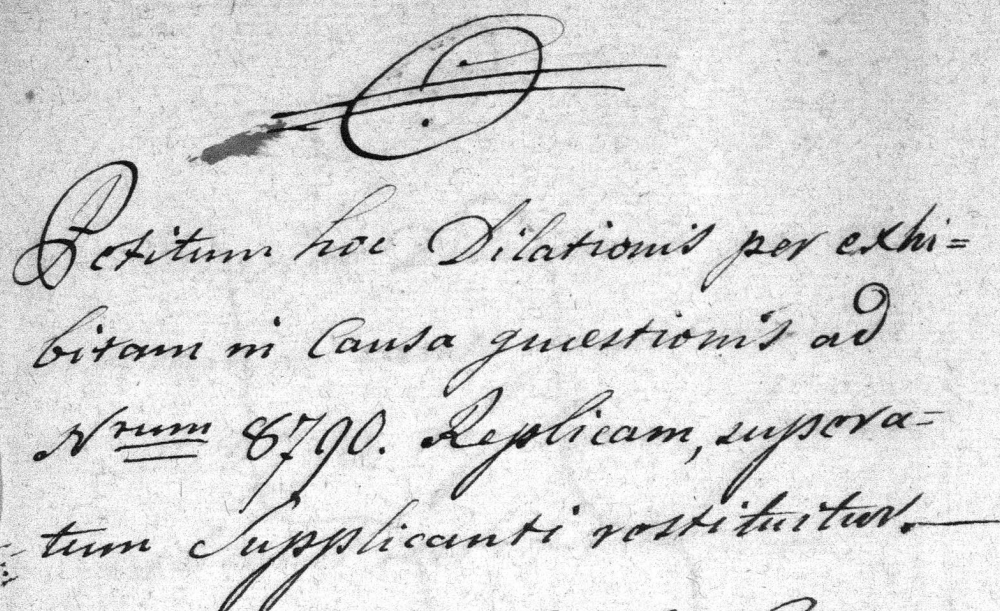 Petitum hoc Dilationis per exhi=
bitam in Causa quæstionis ad
Nrum 8790. Replicam, supera=
tum Supplicanti restituitur.